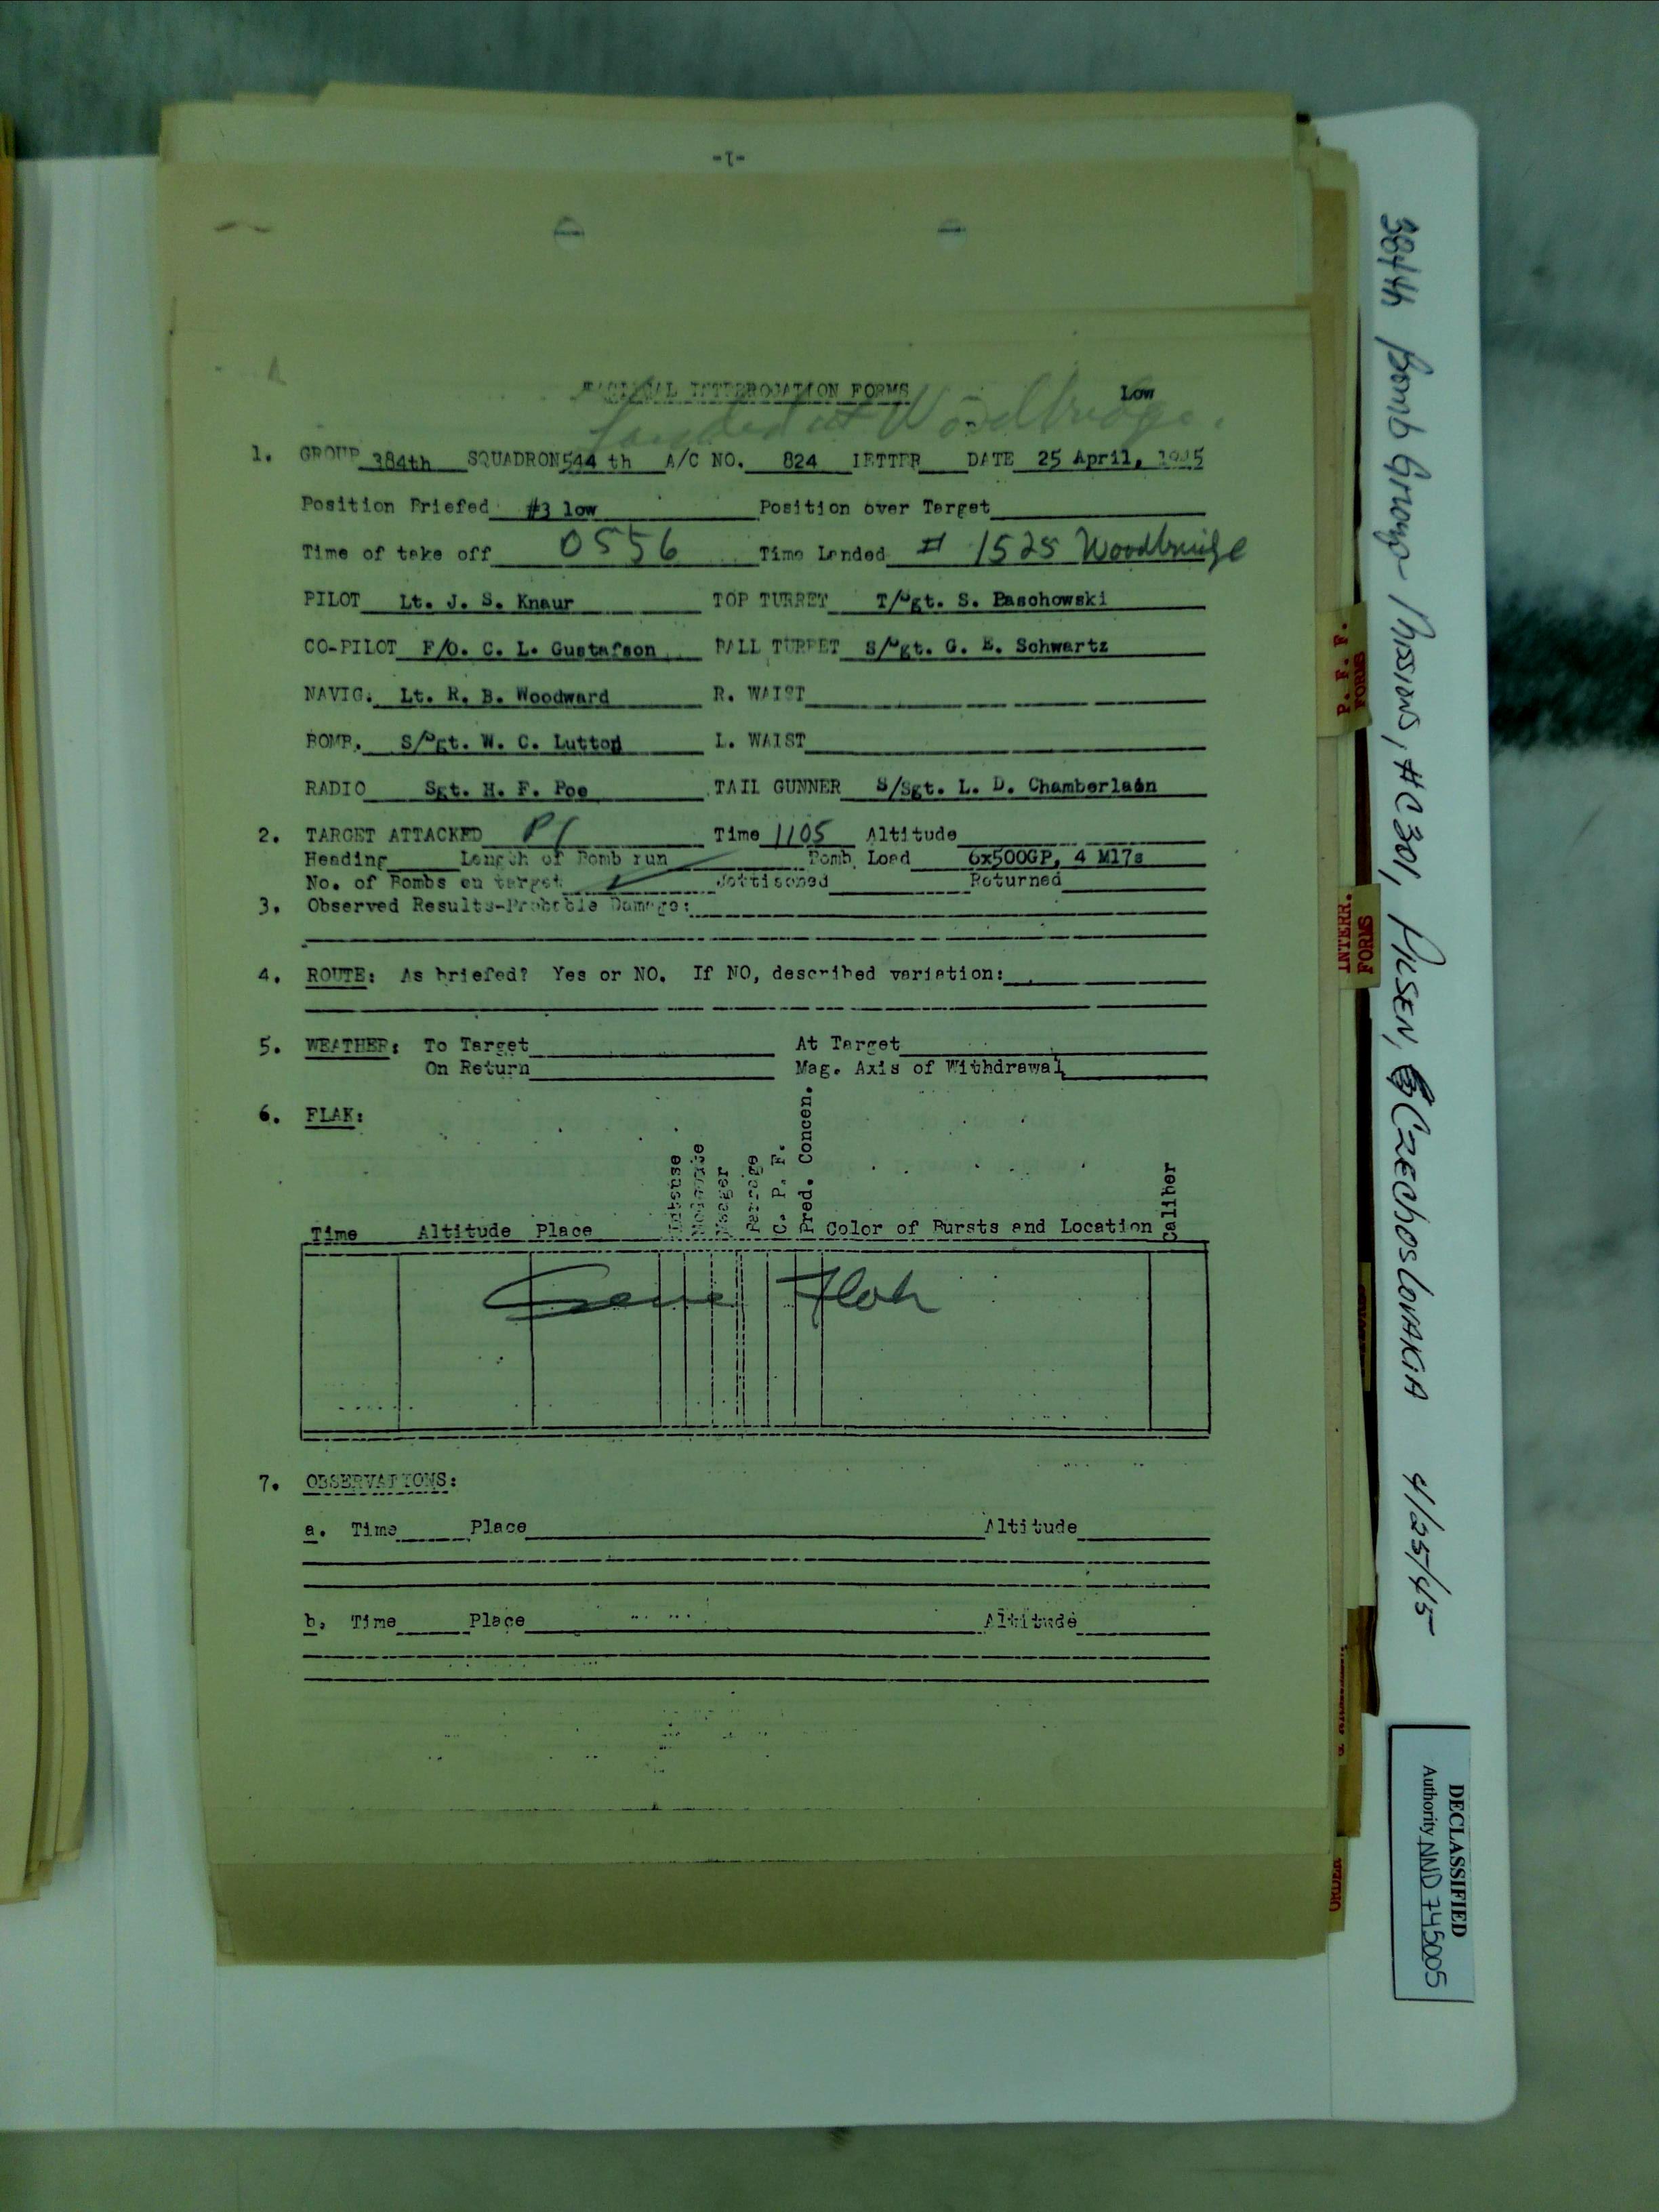 -1-
TACTICAL INTERROGATION FORMS Low
Landed at Woodbridge.
1. GROUP 384th SQUADRON 544 th A/C NO. 824 LETTER DATE 25 April, 1945
Position Briefed #3 low Position over Target
Time of take off 0556 Time Landed 1525 Woodbridge
PILOT Lt. J. S. Knaur TOP TURRET T/Sgt. S. Paschowski
CO-PILOT F/O. C. L. Gustafson BALL TURRET S/Sgt. G. E. Schwartz
NAVIG. Lt. R. B. Woodward R. WAIST
BOMB. S/Sgt. W. C. Lutton L. WAIST
RADIO Sgt. H. F. Poe TAIL GUNNER S/Sgt. L. D. Chamberlain
2. TARGET ATTACKED Time 1105 Altitude
Heading Length of Bomb run Bomb Load 6x500GP, 4 M17s
No. of Bombs on target Jettisoned Returned
3. Observed Results-Probable Damage:
4. ROUTE: As briefed? Yes or NO. If NO, described variation:
5. WEATHER: To Target At Target
On Return Mag. Axis of Withdrawal
6. FLAK:
Time Altitude Place Intense Moderate Meager Barrage C. P. F. Pred. Concen. Color of Bursts and Location Caliber
Flak
7. OBSERVATIONS:
a. Time Place Altitude
b. Time Place Altitude
P. F. F.
FORMS
INTERR.
FORMS
ORDER
384th Bomb Group Mission, #C301, Pilsen, Czechoslovakia 4/25/45
DECLASSIFIED
Authority NND 745005